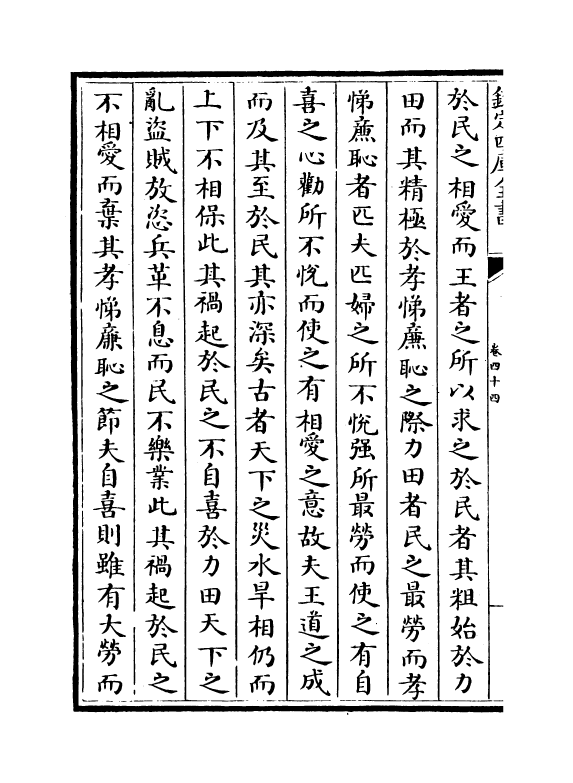 欽定四庫全書
卷四十四
於民之相愛而王者之所以求之於民者其粗始於力
田而其精極於孝悌廉恥之際力田者民之最勞而孝
悌廉恥者匹夫匹婦之所不悅强所最勞而使之有自
喜之心勸所不悅而使之有相愛之意故夫王道之成
而及其至於民其亦深矣古者天下之災水旱相仍而
上下不相保此其禍起於民之不自喜於力田天下之
亂盜賊放恣兵革不息而民不樂業此其禍起於民之
不相愛而棄其孝悌廉恥之節夫自喜則雖有大勞而